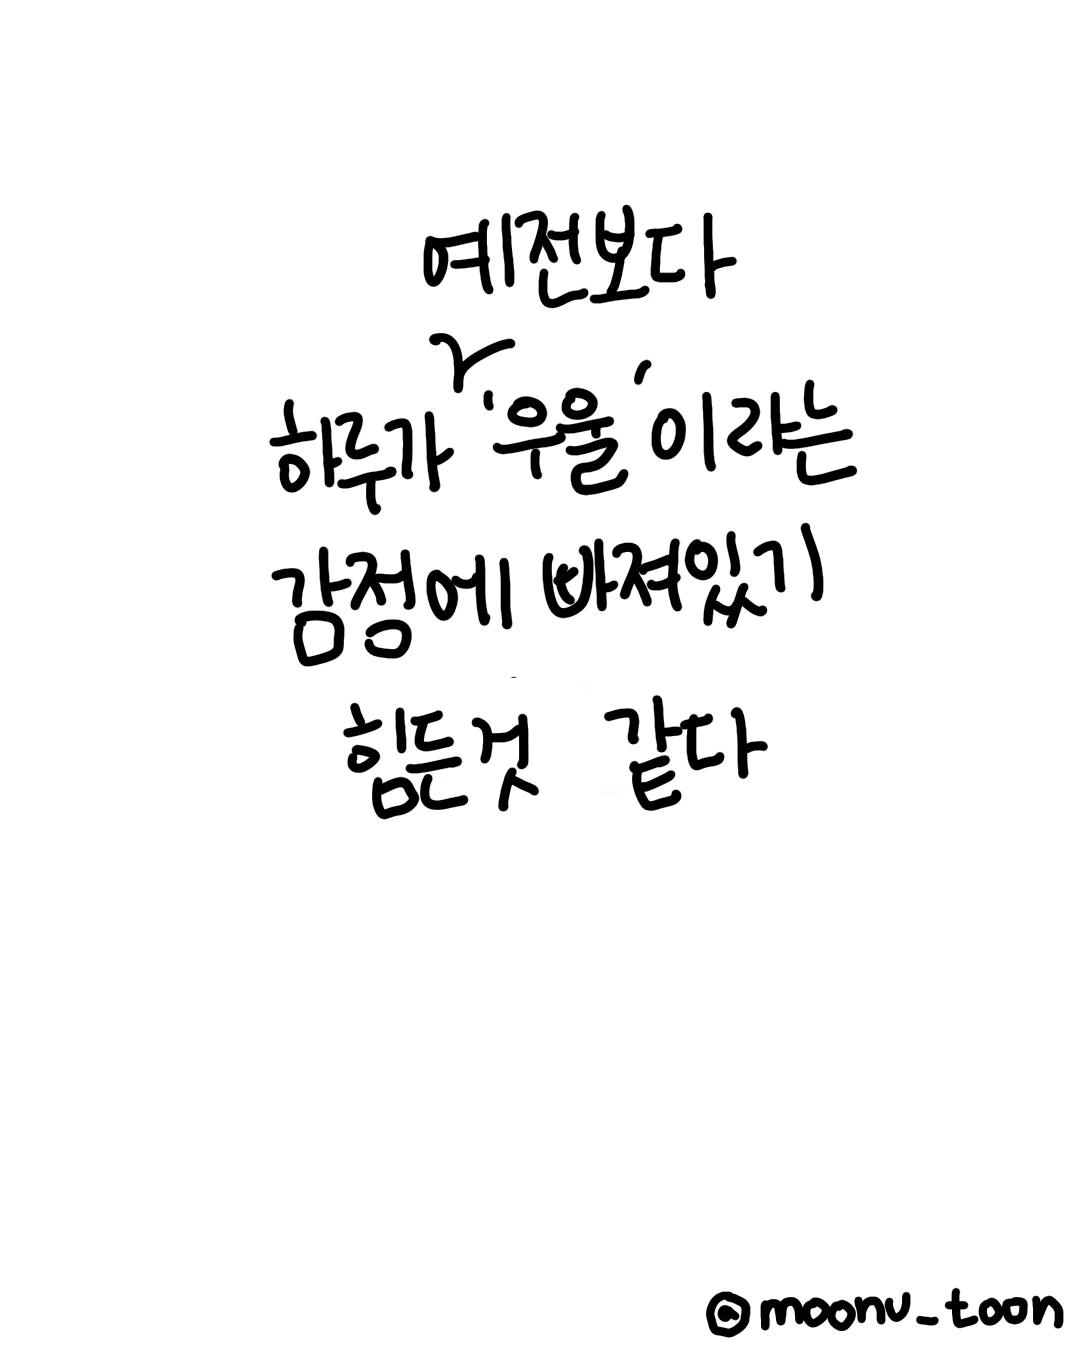 예전보다
하루가 '우울'이라는
감정에 빠져있기
힘든것 같다
@moonu_toon